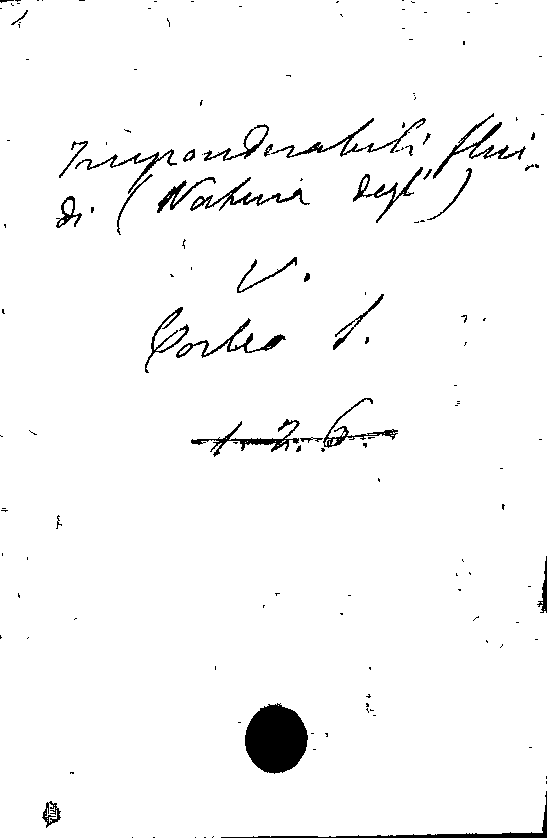 Imponderabili flui-
di (Natura degl')
V.
Corleo S.
1. 2. 6.